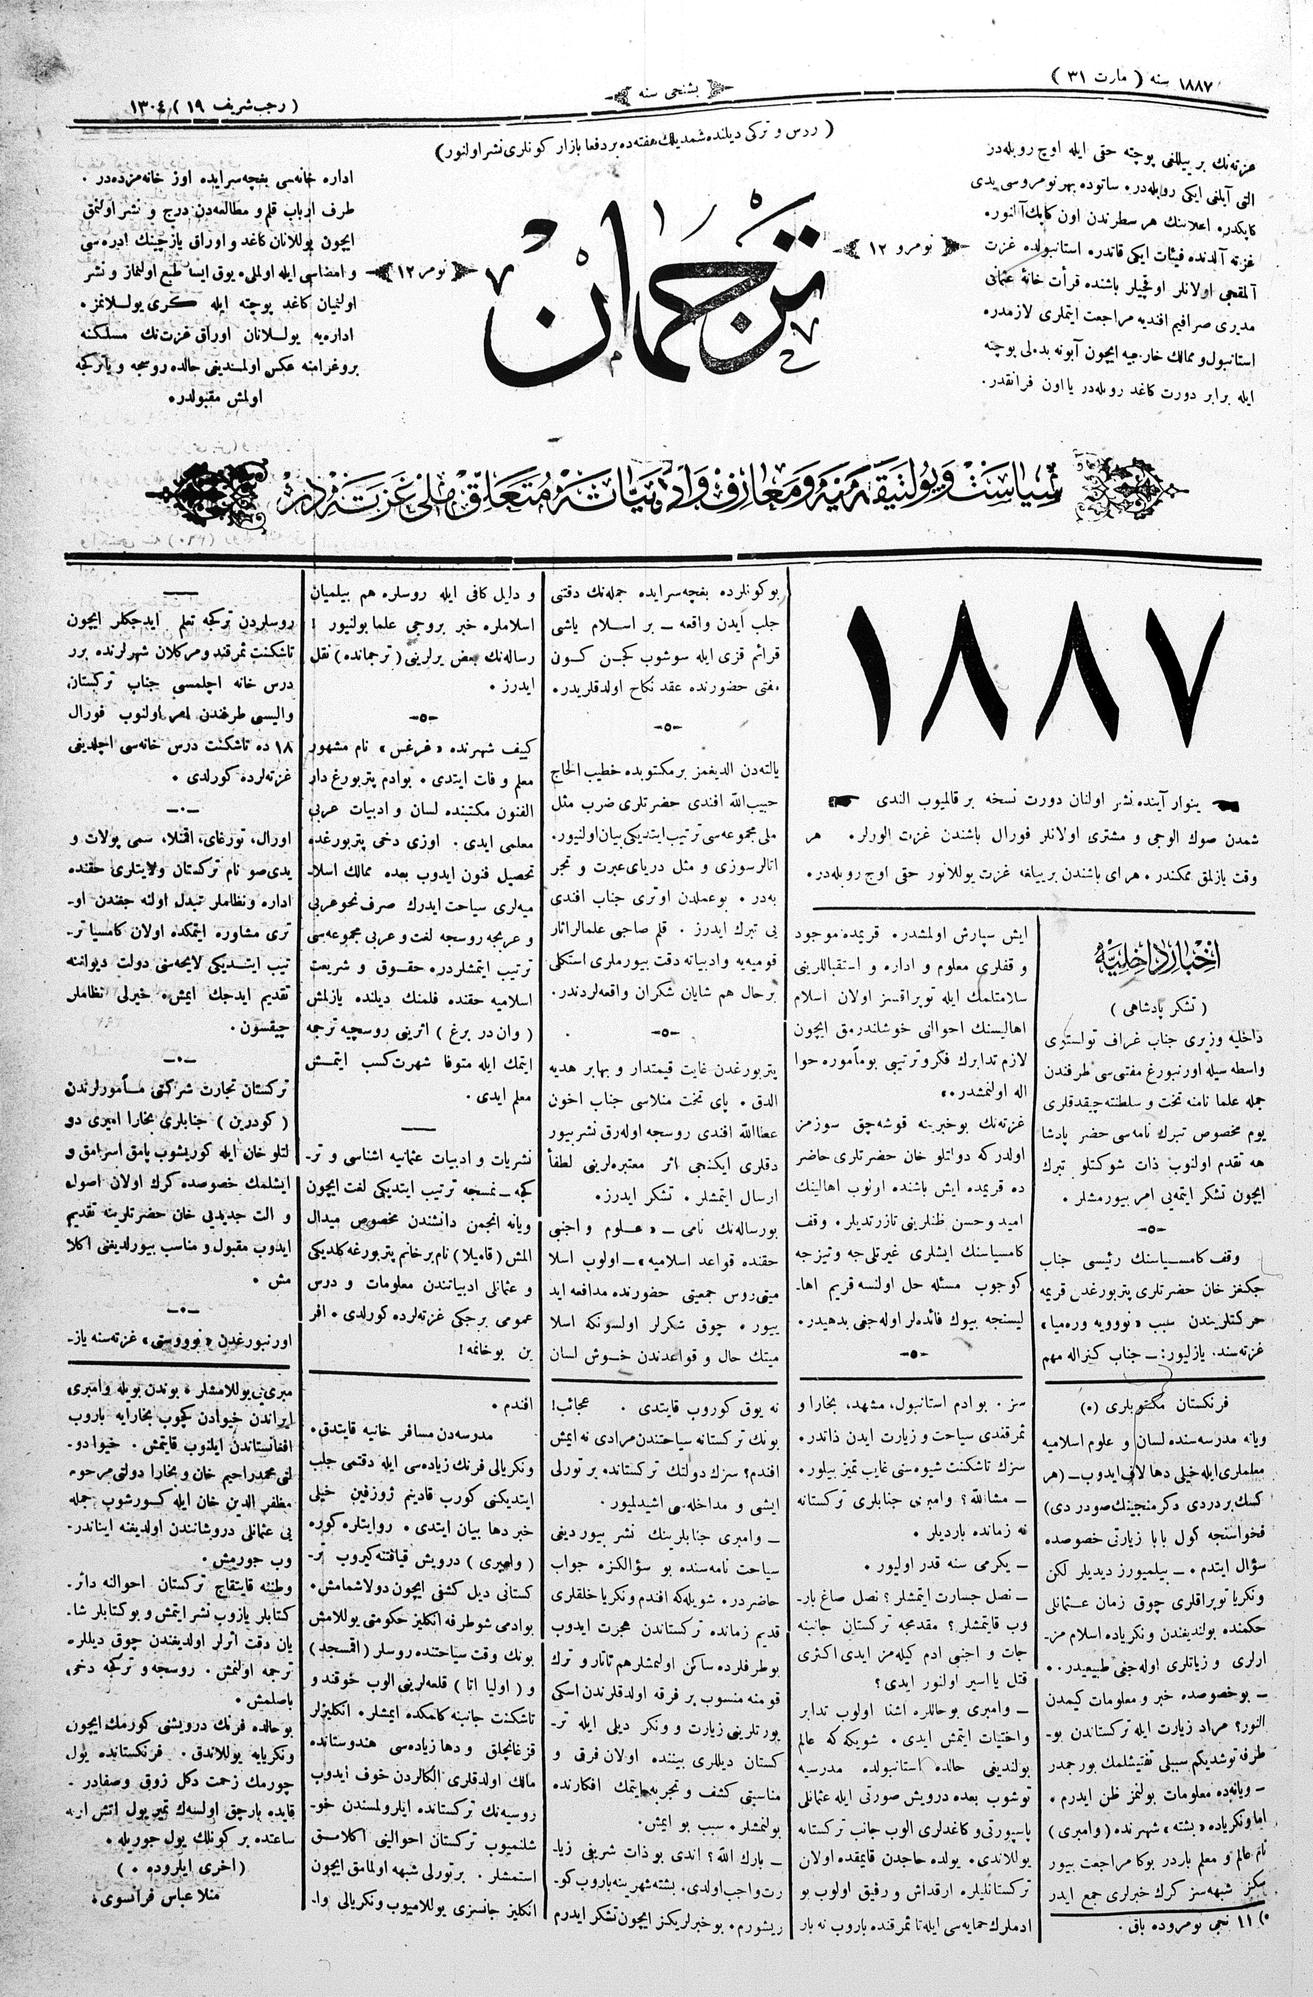 ١٨٨٧ سنه ( مارت ٣١ )
بشنجى سنه
( رجب شريف ١٩ ) ١٣٠٤
( روس و تركى ديلنده شمديلك هفته ده بر دفعا بازار كونلرى نشر اولنور )
غزته نك بر ييللغى پوچته حقى ايله اوچ روبله در
التى آيلغى ايكى روبله در٠ ساتوده بهر نومروسى يدى
كاپكدر٠ اعلاننك هر سطرندن اون كاپك آلنور٠
غزته آلدنده فيئات ايكى قاتدره استانبولده غزت
آلمقجى اولانلر اوقجيلر باشنده قرأت خانۀ عثمانى
مديرى صرافيم افنديه مراجعت ايتملرى لازمدره
استانبول و ممالك خارجيه ايچون آبونه بدلى پوچته
ايله برابر دورت كاغد روبله در يا اون فرانقدر.
نومرو ١٢
ترجمان
نومر ١٢
اداره خانه سى بغچه سرايده اوز خانه مزده در ٠
طرف ارباب قلم و مطالعه دن درج و نشر اولنمق
ايچون يوللانان كاغد و اوراق يازجينك ادره سى
و امضاسى ايله اولملى٠ يوق ايسا طبع اولنماز و نشر
اولنميان كاغد پوچته ايله كرى يوللانمز٠
اداره يه يوللانان اوراق غزت نك مسلكنه
پروغرامنه عكس اولمديغى حالده روسجه و ياتركجه
اولمش مقبولدره
سياست و پولتيقه يه و معارف و ادبياته متعلق ملى غزته در
١٨٨٧
ينوار آينده نشر اولنان دورت نسخه بر قالميوب الندى
شمدن صوك الوجى و مشترى اولانلر فورال باشندن غزت الورلر٠ هر
وقت يازلمق ممكندر٠ هر اى باشندن بر ييلغه غزت يوللانور حقى اوچ روبله در٠
اخبار داخليه
( تشكر پادشاهى )
داخليه وزيرى جناب غراف تولستوى
واسطه سيله اورنبورغ مفتى سى طرفندن
جمله علما نامنه تخت و سلطنته چيقدقلرى
يوم مخصوص تبرك نامه سى حضر پادشا
هه تقدم اولنوب ذات شوكتلو تبرك
ايچون تشكر ايتمه يى امر بيورمشلر ٠
وقف كامسياسنك رئيسى جناب
جنكز خان حضرتلرى پتربورغدن قريمه
حركتلريندن سبب «نووويه وره ميا»
غزته سند٠ يازليور: — جناب كنراله مهم
ايش سپارش اولمشدر٠ قريمده موجود
و قفلرى معلوم و اداره و استقباللرينى
سلامتلمك ايله توپراقسز اولان اسلام
اهاليسنك احوالنى خوشلندرمق ايچون
لازم تدابرك فكر و ترتيبى بومأموره حوا
اله اولنمشدر٠»
غزته نك بوخبرينه قوشه جق سوزمز
اولدركه دولتلو خان حضرتلرى حاضر
ده قريمده ايش باشنده اولوب اهالينك
اميد و حسن ظنلرينى تازرتديلر٠ وقف
كامسياسنك ايشلرى غيرتلى جه و تيزجه
كوجوب مسئله حل اولنسه قريم اها-
ليسنجه بيوك فائده لر اوله جغى بديهيدر٠
بوكونلرده بغچه سرايده جمله نك دقتى
جلب ايدن واقعه — بر اسلام ياشى
قرائم قزى ايله سوشوب كچن كون
مفتى حضورنده عقد نكاح اولدقلريدر٠
يالته دن الديغمز بر مكتوبده خطيب الحاج
حبيب الله افندى حضرتلرى ضرب مثل
ملى مجموعه سى ترتيب ايتديكى بيان اولنيور٠
اتالر سوزى و مثل درياى عبرت و تجر
به در ٠ بوعملدن اوترى جناب افندى
يى تبرك ايدرز ٠ قلم صاحبى علمالر اثار
قوميه يه و ادبياته دقت بيورملرى استكلى
بر حال هم شايان شكران واقعه لردندر٠
پتربورغدن غايت قيمتدار و بهابر هديه
الدق ٠ پاى تخت منلاسى جناب اخون
عطاالله افندى روسجه اوله رق نشر بيور
دقلرى ايكنجى اثر معتبره لرينى لطفاً
ارسال ايتمشلر ٠ تشكر ايدرز٠
بورساله نك نامى — «علوم و اجنبى
حقنده قواعد اسلاميه» — اولوب اسلا
ميتى روس جمعيتى حضورنده مدافعه ايد
ييور ٠ چوق شكرلر اولسونكه اسلا
ميتك حال و قواعدندن خوش لسان
و دليل كافى ايله روسلره هم بيلميان
اسلاملره خبر بروجى علما بولنيور !
رساله نك بعض يرلرينى ( ترجمانده ) نقل
ايدرز ٠
كييف شهرنده «فرغس» نام مشهور
معلم وفات ايتدى ٠ بوادم پتربورغ دار
الفنون مكتبنده لسان و ادبيات عربى
معلمى ايدى ٠ اوزى دخى پتربورغده
تحصيل فنون ايدوب بعده ممالك اسلا-
ميه لرى سياحت ايدرك صرف نحو عربى
و عربجه روسجه لغت و عربى مجموعه سى
ترتيب ايتمشلردره حقوق و شريعت
اسلاميه حقنده فلمنك ديلنده يازلمش
( وان در برغ ) اثرينى روسجيه ترجمه
ايتمك ايله متوفا شهرت كسب ايتمش
معلم ايدى ٠
نشريات و ادبيات عثمانيه اشناسى و تر-
كجه — نمسجه ترتيب ايتديكى لغت ايچون
ويانه انجمن دانشندن مخصوص ميدال
المش ( قاميلا ) نام بر خانم پتربورغه كلديكى
و عثمانلى ادبياتندن معلومات و درس
عمومى برجكى غزته لرده كورلدى ٠ افر
ين بوخانمه !
روسلردن تركجه تعلم ايدجكلر ايچون
تاشكنت ثمرقند و مركلان شهرلرنده برر
درس خانه اچلمسى جناب تركستان
واليسى طرفندن امر اولنوب فورال
١٨ ده تاشكنت درس خانه سى اچلديغى
غزته لرده كورلدى ٠
اورال، تورغاى، اقتلا، سمى پولات و
يدى صو نام تركستان ولايتلرى حقنده
اداره و نظاملر تبدل اولنه جغندن او-
ترى مشاوره ايتمكده اولان كامسيا تر-
تيب ايتديكى لايحه سنى دولت ديواننه
تقديم ايدجك ايمش٠ خيرلى نظاملر
چيقسون٠
تركستان تجارت شركتى مأمورلرندن
( كودرين ) جنابلرى بخارا اميرى دو
لتلو خان ايله كوريشوب پامق اسرامق و
ايشلمك خصوصده كرك اولان اصول
و الت جديديى خان حضرتلرينه تقديم
ايدوب مقبول و مناسب بيورلديغنى اكلا
مش ٠
اورنبورغدن «نووستى» غزته سنه ياز-
فرنكستان مكتوبلرى (٥)
ويانه مدرسه سنده لسان و علوم اسلاميه
معلمارى ايله خيلى دها لاف ايدوب — (هر
كسك بردردى دكرمنجينك صودردى)
فحواسنجه كول بابا زيارتى خصوصده
سؤال ايتدم ٠ — بيلميورز ديديلر لكن
ونكريا توپراقلرى چوق زمان عثمانلى
حكمنده بولنديغندن ونكرياده اسلام مز-
ارلرى و زياتلرى اوله جغى طبيعيدر٠٠
— بوخصوصده خبر و معلومات كيمدن
النور؟ مراد زيارت ايله تركستاندن بو-
طرفه توشديكم سببلى تفتيشلمك بورجمدر
— ويانه ده معلومات بولنمز ظن ايدرم ٠
اما ونكرياده «پشته» شهرنده (وامبرى)
نام عالم و معلم باردر بوكا مراجعت بيور
سكز شبهه سز كرك خبرلرى جمع ايدر
٥) ١١ نجى نومروده باق ٠
سز ٠ بوادم استانبول، مشهد، بخارا و
ثمرقندى سياحت و زيارت ايدن ذاتدر٠
سزك تاشكنت شيوه سنى غايت تميز بيلور٠
— مشاالله؟ وامبرى جنابلرى تركستانه
نه زمانده بارديلر ٠
— يكرمى سنه قدر اوليور ٠
— نصل جسارت ايتمشلر؟ نصل صاغ بار-
وب قايتمشلر؟ مقدمجه تركستان جانبنه
جات و اجنبى ادم كيله مز ايدى اكثرى
قتل يا اسير اولنور ايدى؟
— وامبرى بوحاللره اشنا اولوب تدابر
و احتيات ايتمش ايدى ٠ شويكه كه عالم
بولنديغى حالده استانبولده مدرسه يه
توشوب بعده درويش صورتى ايله عثمانلى
پاسپورتى و كاغدلرى الوب جانب تركستانه
يوللاندى ٠ يولده حاجدن قايتمقده اولان
تركستانليلره ارقداش و رفيق اولوب بو
ادملرك حمايه سى ايله تا ثمرقنده باروب نه بار
نه يوق كوروب قايتدى ٠ عجائب!
بونك تركستانه سياحتندن مرادى نه ايمش
افندم؟ سزك دولتك تركستانده بر تورلى
ايشى و مداخله سى اشيدلميور ٠
— وامبرى جنابلرينك نشر بيورديغى
سياحت نامه سنده بو سؤالكزه جواب
حاضردر ٠ شويله كه افندم ونكريا خلقلرى
قديم زمانده تركستاندن هجرت ايدوب
بوطرفلرده ساكن اولمشلر هم تاتار و ترك
قومنه منسوب بر فرقه اولدقلرندن اسكى
يورتلرينى زيارت و ونكر ديلى ايله تر-
كستان ديللرى بيننده اولان فرق و
مناسبتى كشف و تجربه ايتمك افكارنده
بولنمشلر ٠ سبب بو ايمش٠
— بارك الله؟ اندى بو ذات شريفى زيا-
رت واجب اولدى٠ پشته شهرينه باروب كو-
ريشورم ٠ بوخبرلريكز ايچون تشكر ايدرم
افندم ٠
مدرسه دن مسافر خانيه قايتدق٠
ونكريالى فرنك زياده سى ايله دقتمى جلب
ايتديكنى كورب قادينم ژوزفين خيلى
خبر دها بيان ايتدى ٠ روايتلره كوره
( وامبرى ) درويش قيافتنه كيروب تر-
كستانى ديل كشفى ايچون دولاشمامش٠
بوادمى شو طرفه انكليز حكومتى يوللامش
بونك وقت سياحتنده روسلر ( اقمسجد )
و ( اوليا اتا ) قلعه لرينى الوب خوقند و
تاشكنت جانبنه كامكده ايمشلر٠ انكليزلر
قزغانجلق و دها زياده سى هندوستانده
مالك اولدقلرى الكالردن خوف ايدوب
روسيه نك تركستانده ايلرولمسندن خو-
شلنميوب تركستان احوالينى اكلامق
استمشلر ٠ برتورلى شبهه اولمامق ايچون
انكليز جانسزى يوللاميوب ونكريالى وا-
مبرى يى يوللامشلر ٠ بوندن بويله وامبرى
ايراندن خيوادن كچوب بخارايه باروب
افغانستاندن ايلنوب قايتمش ٠ خيوا دو-
لتى محمد راحيم خان و بخارا دولتى مرحوم
مظفر الدين خان ايله كورشوب جمله
يى عثمانلى درويشانندن اولديغنه ايناندر-
وب جورمش٠
وطننه قايتقاچ تركستان احوالنه دائر-
كتابلر يازوب نشر ايتمش و بوكتابلر شا-
يان دقت اثرلر اولديغندن چوق ديللره
ترجمه اولنمش ٠ روسجه و تركجه دخى
باصلمش ٠
بوحالده فرنك درويشنى كورمك ايچون
ونكريايه يوللاندق ٠ فرنكستانده يول
جورمك زحمت دكل زوق و صفادر —
قايده بارجق اولسه ك تمير يول اتش اربه
ساعتده بر كونلك يول جوريله ٠
( اخرى ايلروده ٠ )
منلا عباس فرانسوى٠